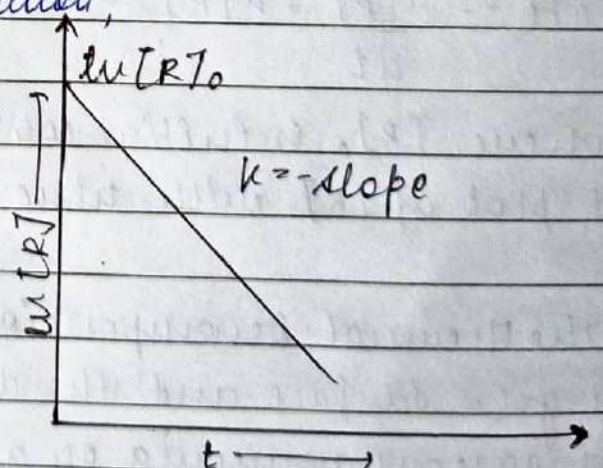 ln [R]₀
k = -slope
ln [R]
t